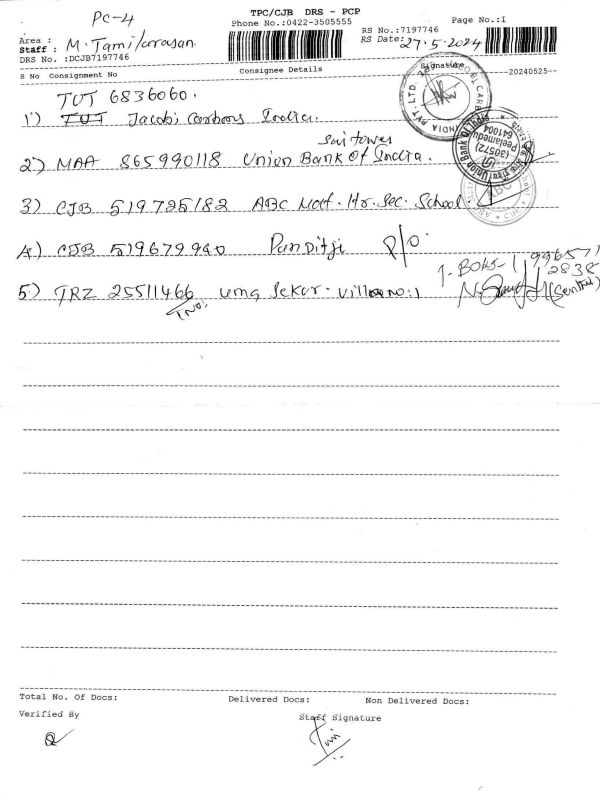 PC-4
TPC/CJB DRS - PCP
Phone No.:0422-3505555
Page No.:I
Area :
Staff : M. Tamilarasan
DRS No. :DCJB7197746
RS No.:7197746
RS Date: 27.5.2024
S No Consignment No Consignee Details Signature --20240525--
TUT 6836060.
1) TUT Jacobi Carbons India.
Sai tower
2) MAA 865990118 Union Bank Of India.
3) CJB 519725182 ABC Mat. Hr. Sec. School.
4) CJB 519679940 Panditji P/O.
5) TRZ 25511466 Uma Sekar. Villa no:1
1 no.
99657
2838
Union Bank of India
(30572)
Peelamedu
641004
Total No. Of Docs: Delivered Docs: Non Delivered Docs:
Verified By Staff Signature